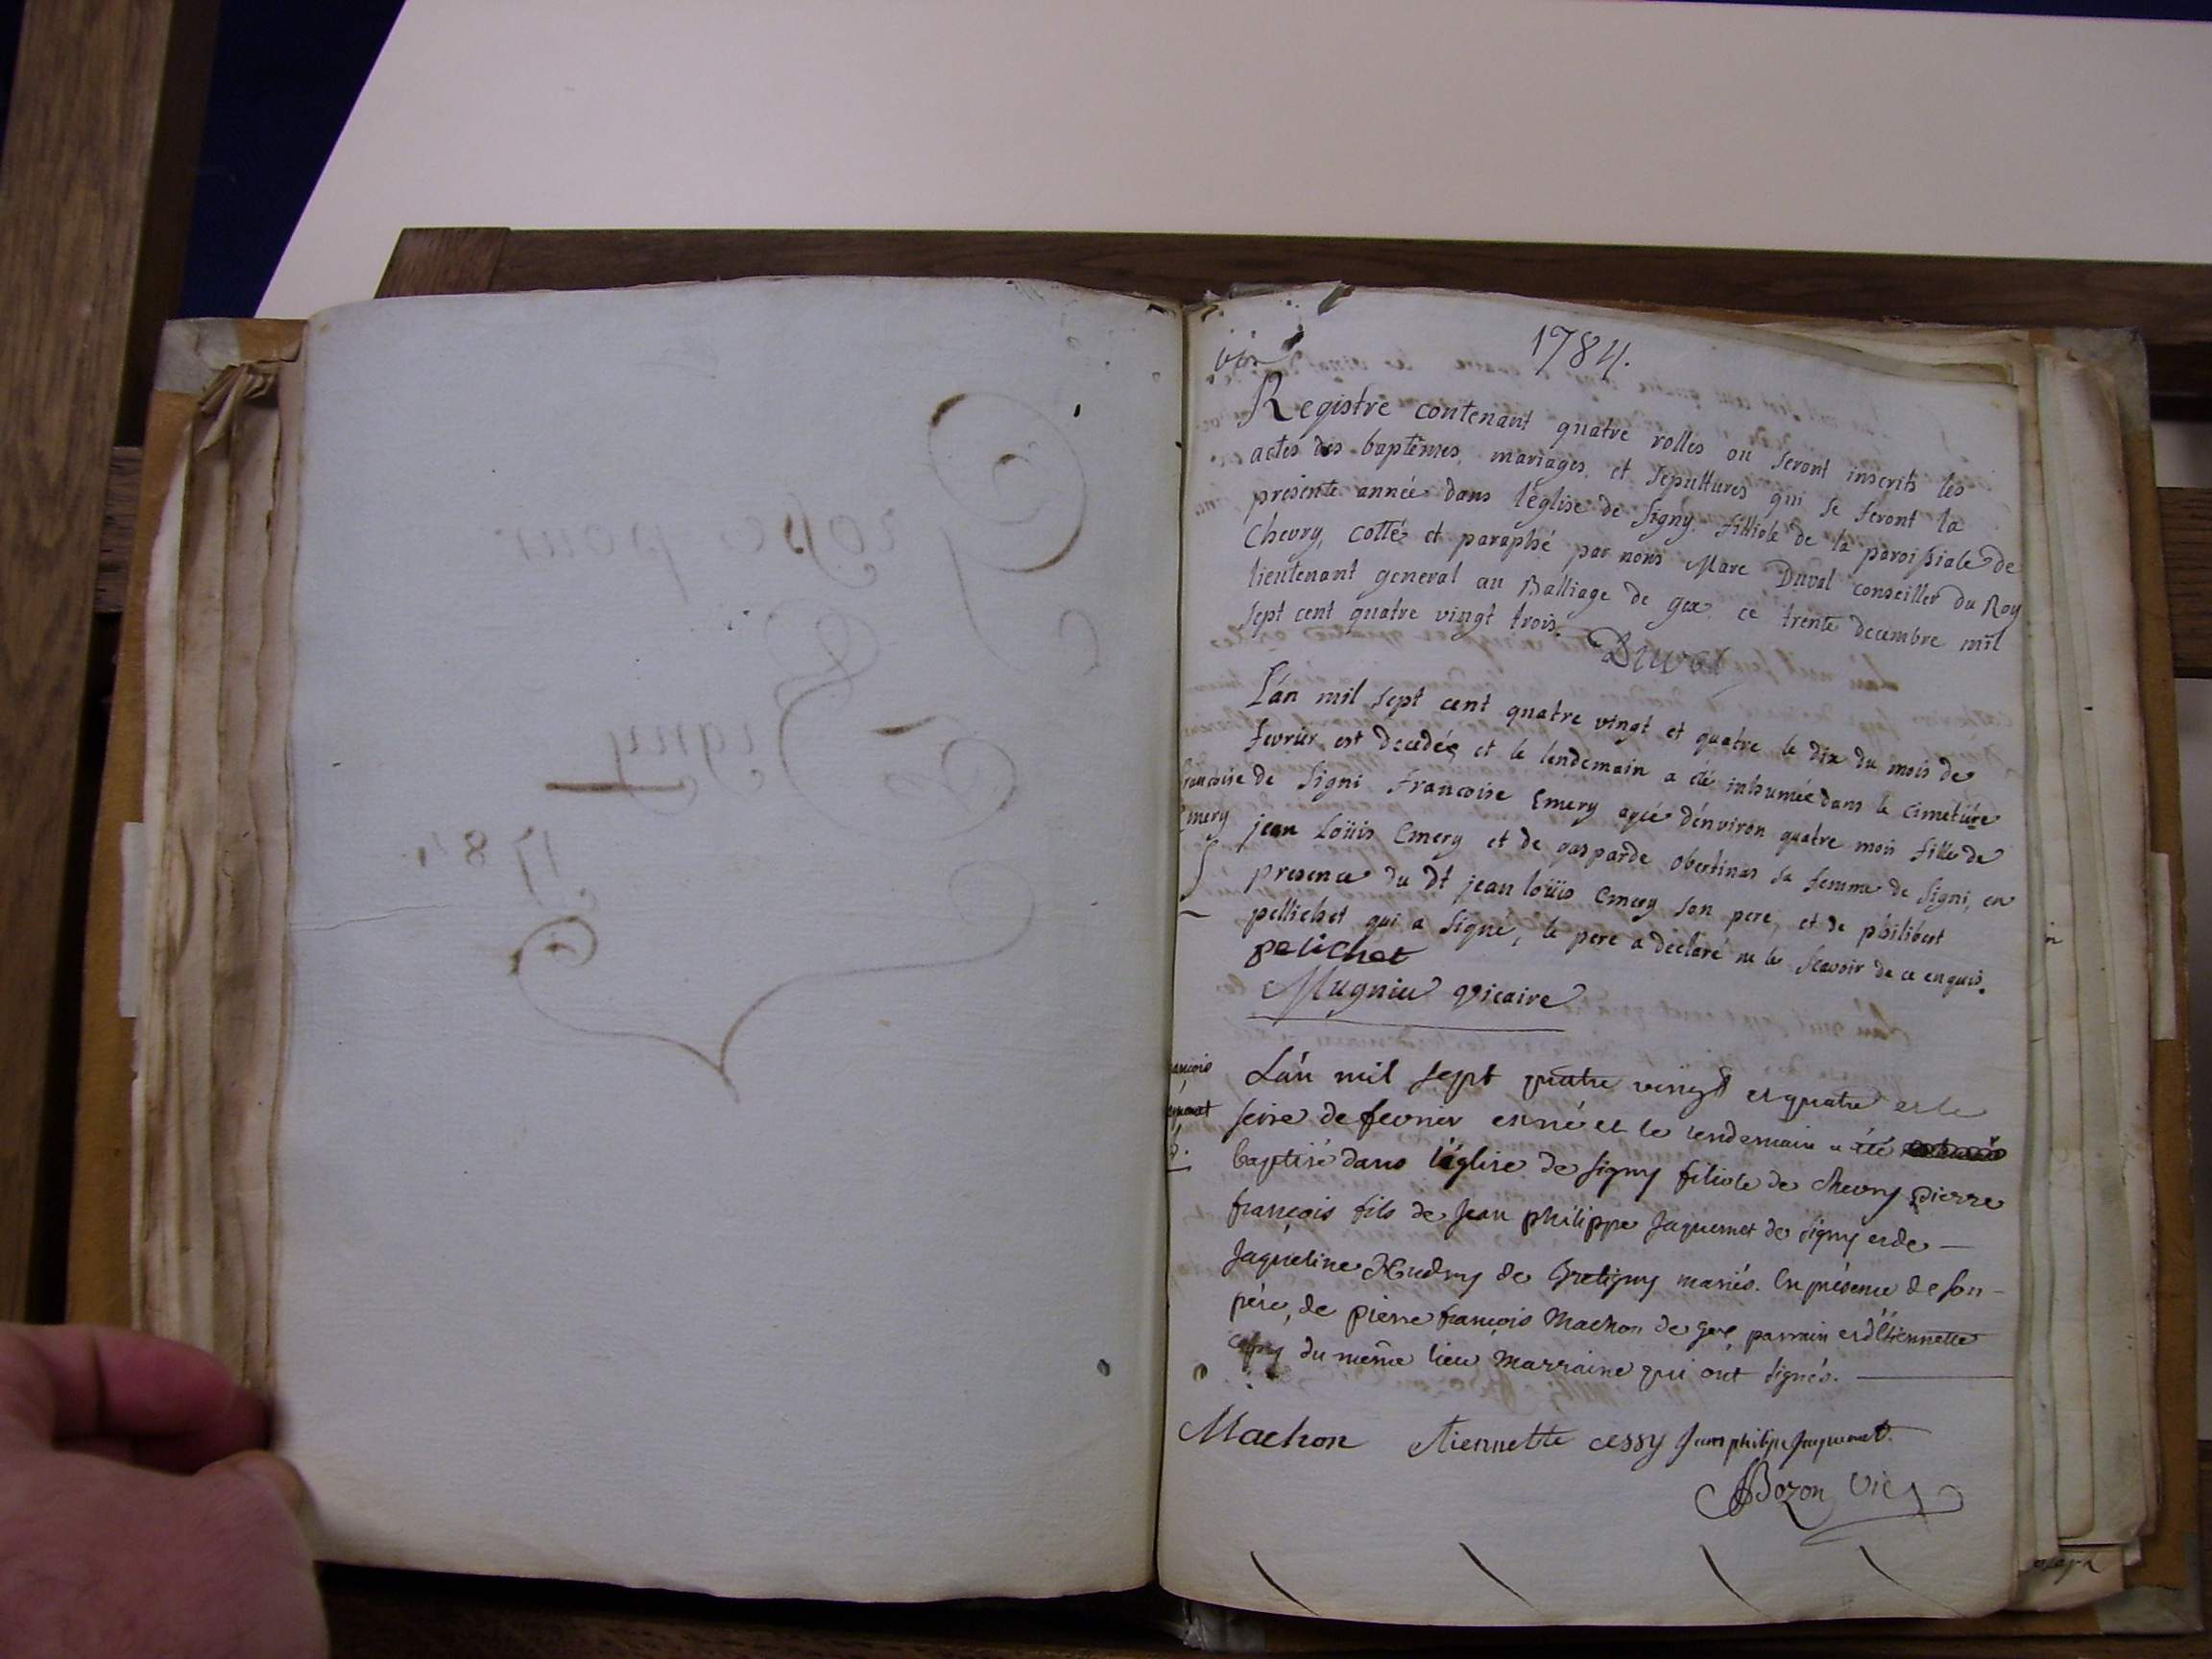 Grosse pour
Signy
1784
1784.
Registre contenant quatre rolles ou seront inscrits les
actes des baptêmes, mariages, et sepultures qui se feront la
presente année dans l'église de Signy filliole de la paroissiale de
Chevry, cotté et paraphé par nous Marc Duval conseiller du Roy
lieutenant general au Balliage de gex ce trente decembre mil
sept cent quatre vingt trois.
Duval
L'an mil sept cent quatre vingt et quatre le dix du mois de
fevrier est decedée et le lendemain a été inhumée dans le cimetière
francoise de Signi Francoise Emery agée d'environ quatre mois fille de
Emery jean Loüis Emery et de gasparde obertinas sa femme de Signi, en
presence du dt jean loüis Emery son pere, et de philibert
pellichet qui a signé, le pere a declaré ne le scavoir de ce enquis.
pelichet
Mugnier vicaire
L'an mil sept quatre vingt et quatre et le
seize de fevrier est né et le lendemain a été
baptisé dans l'église de signy filiole de Chevry pierre
françois fils de Jean philippe Jaquemet de signy et de
Jaqueline Hudry de Gretigny mariés. En présence de son
pére, de pierre françois Machon de gex parrain et d'Etiennette
cessy du même lieu marraine qui ont signés.
Machon Etiennette cessy Jean philipe Jaquemet
Bozon vic